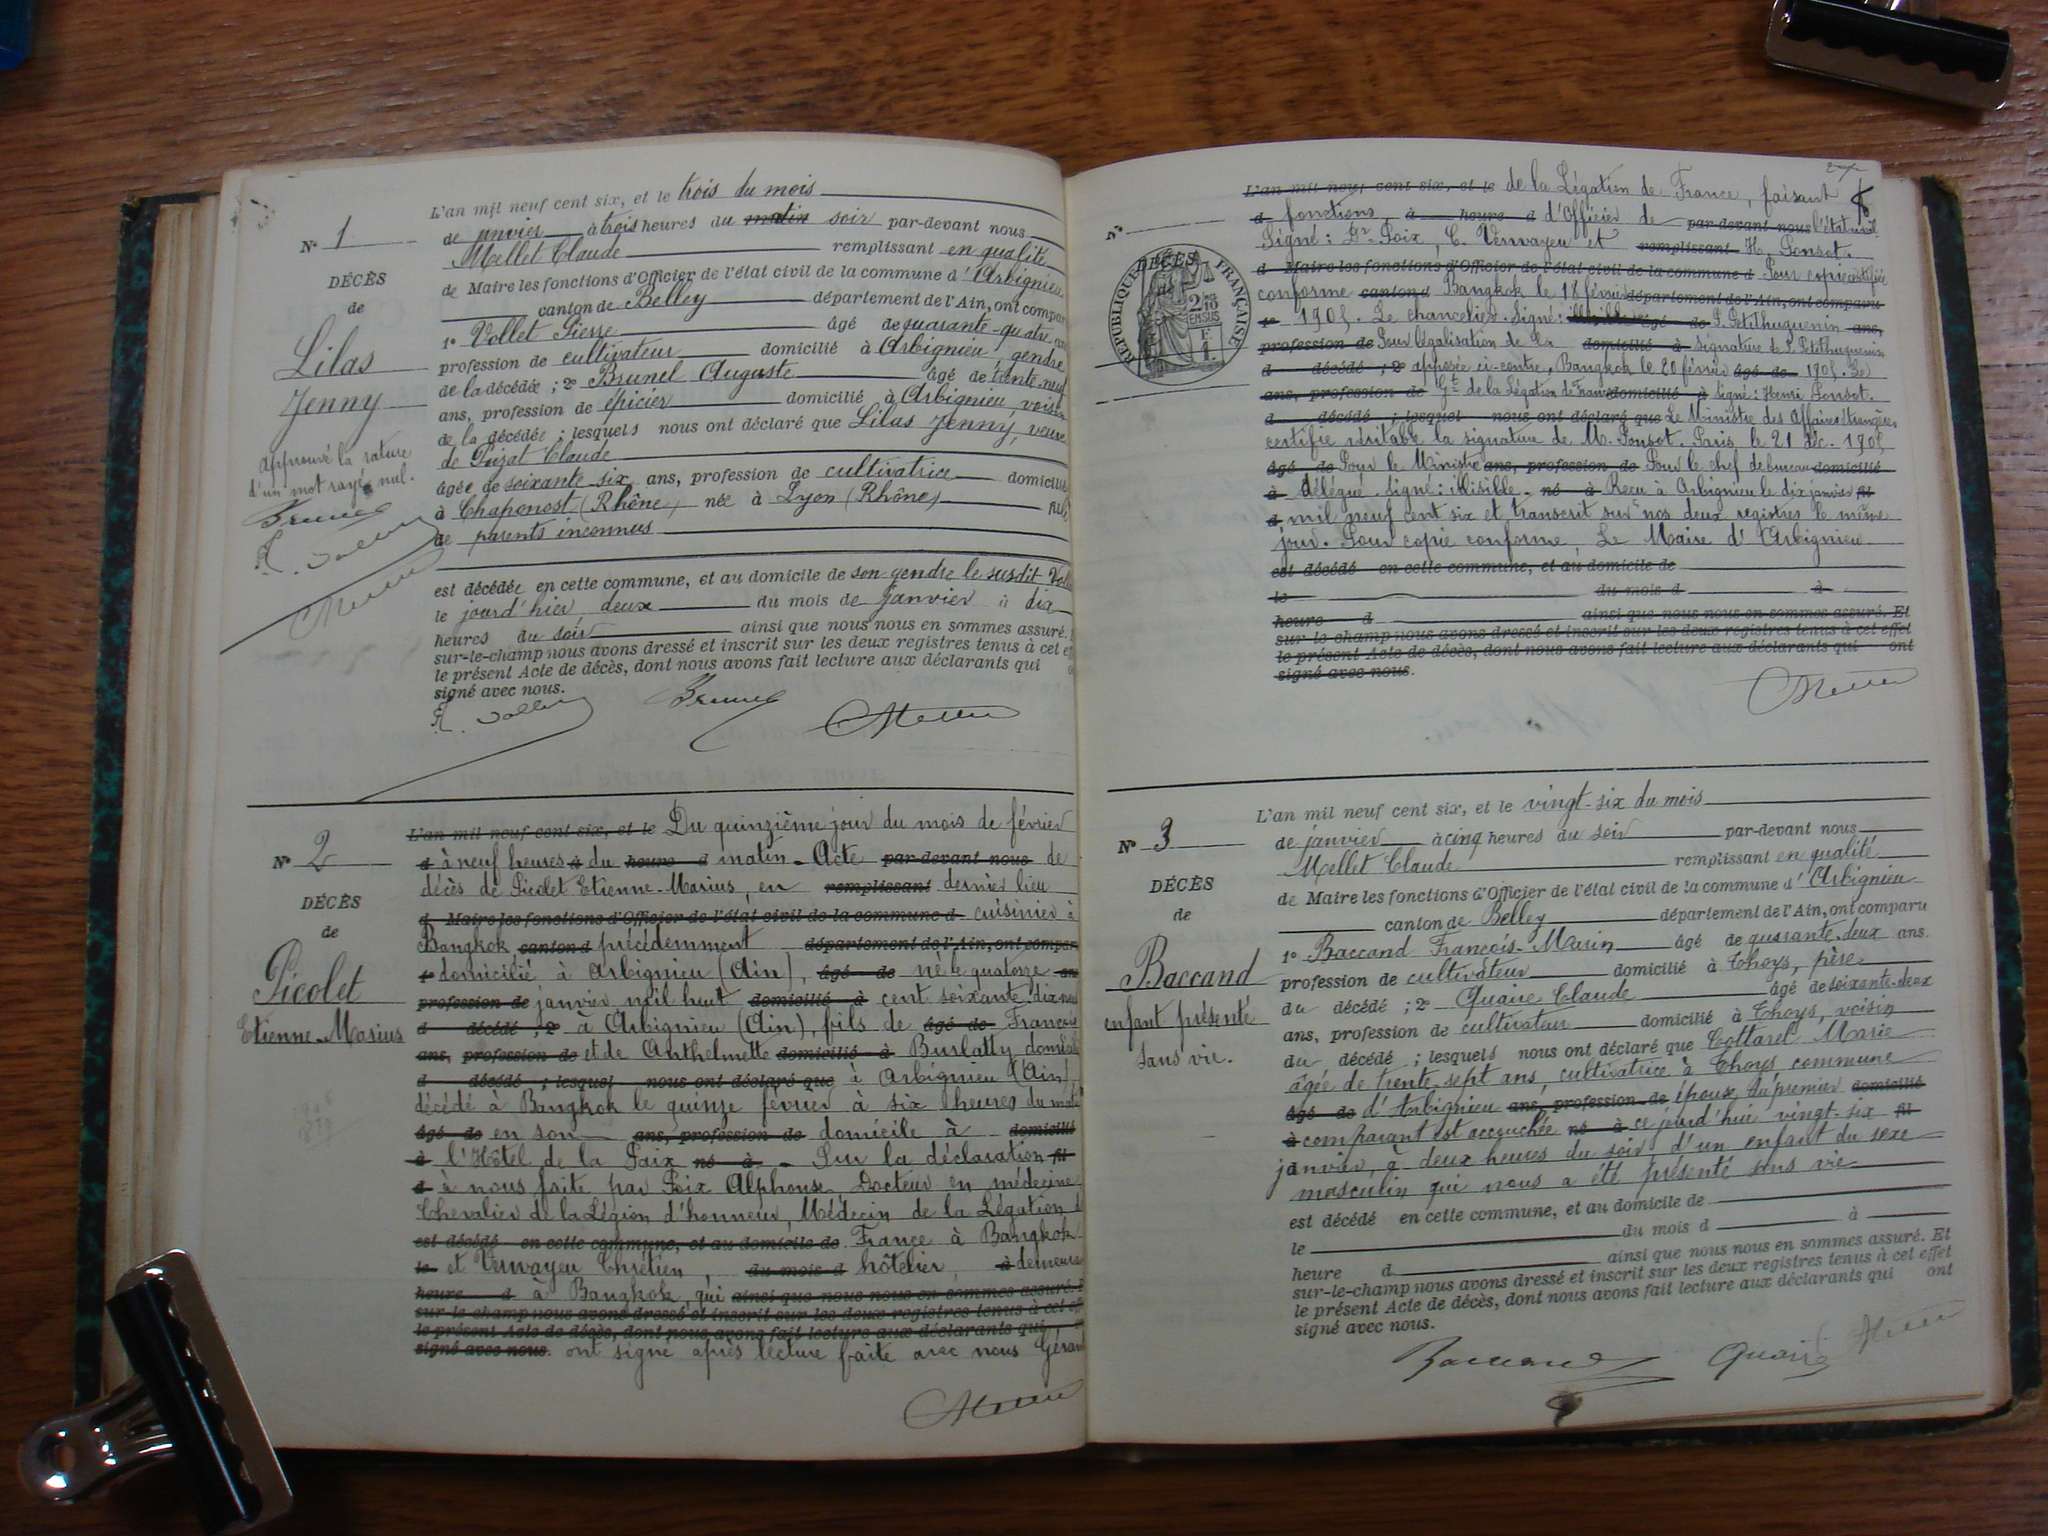 L'an mil neuf cent six, et le trois du mois
N° 1
de janvier à trois heures du matin soir par-devant nous
Mellet Claude remplissant en qualité
DÉCÈS
de Maire les fonctions d'Officier de l'état civil de la commune d'Arbignieu
de
canton de Belley département de l'Ain, ont compar
1° Vollet Pierre âgé de quarante-quatre ans
Lilas
profession de cultivateur domicilié à Arbignieu, gendre
de la décédée ; 2° Brunel Auguste âgé de trente-neuf
Jenny
ans, profession de épicier domicilié à Arbignieu, voisin
de la décédée ; lesquels nous ont déclaré que Lilas Jenny, veuve
approuvé la rature
de Poizat Claude
d'un mot rayé nul.
âgée de soixante-six ans, profession de cultivatrice domicilié
Brunel
à Chaponost (Rhône) née à Lyon (Rhône) fille
de parents inconnus
est décédée en cette commune, et au domicile de son gendre le susdit Voll
le jourd'hier deux du mois de janvier à dix
heures du soir ainsi que nous nous en sommes assuré.
sur-le-champ nous avons dressé et inscrit sur les deux registres tenus à cet ef
le présent Acte de décès, dont nous avons fait lecture aux déclarants qui
signé avec nous.
Brunel
N° 2
L'an mil neuf cent six, et le Du quinzième jour du mois de février
d à neuf heures à du heure d matin - Acte par-devant nous de
décès de Picolet Etienne-Marius, en remplissant dernier lieu
DÉCÈS
d Maire les fonctions d'Officier de l'état civil de la commune d cuisinier à
de
Bangkok canton d précédemment département de l'Ain, ont compar
1° domicilié à Arbignieu (Ain), âgé de né le quatorze ans
Picolet
profession de janvier mil huit domicilié à cent soixante dix neuf
Etienne-Marius
d décédé ; 2° à Arbignieu (Ain), fils de âgé de François
ans, profession de et de Anthelmette domicilié à Burlatty domicilié
d décédé ; lesquel nous ont déclaré que à Arbignieu (Ain),
décédé à Bangkok le quinze février à six heures du matin
âgé de en son ans, profession de domicile à domicilié
à l'Hôtel de la Paix né à - Sur la déclaration fil
d à nous faite par Poix Alphonse Docteur en médecine
Chevalier de la Légion d'honneur, Médecin de la Légation de
est décédé en cette commune, et au domicile de France à Bangkok
le et Verwayen Chrétien, du mois d hôtelier, à demeura
heure d à Bangkok, qui ainsi que nous nous en sommes assuré. E
sur-le-champ nous avons dressé et inscrit sur les deux registres tenus à cet ef
le présent Acte de décès, dont nous avons fait lecture aux déclarants qui
signé avec nous. ont signé après lecture faite avec nous Gérant
L'an mil neuf cent six, et le de la Légation de France, faisant
d fonctions, à heure d d'Officier de par-devant nous l'état civil.
N°
Signé : Dr Poix, C. Verwayen et remplissant H. Ponsot.
DÉCÈS
de
RÉPUBLIQUE FRANÇAISE
2/10 EN SUS
F. 1.
d Maire les fonctions d'Officier de l'état civil de la commune d Pour copie certifiée
conforme canton d Bangkok le 18 février département de l'Ain, ont comparu
1° 1905. Le chancelier. Signé : âgé de P. Petithuguenin ans,
profession de Pour légalisation de la domicilié à signature de P. Petithuguenin
d décédé ; 2° apposée ci-contre, Bangkok le 20 février âgé de 1905. Le
ans, profession de Gt de la Légation de France domicilié à signé : Henri Ponsot.
d décédé ; lesquel nous ont déclaré que Le Ministre des Affaires étrangères
certifie véritable la signature de M. Ponsot. Paris le 21 Déc. 1905
âgé de Pour le Ministre ans, profession de Pour le chef de bureau domicilié
à délégué. Signé : illisible. né à Reçu à Arbignieu le dix janvier fil
d mil neuf cent six et transcrit sur nos deux registres le même
jour. Pour copie conforme, Le Maire d'Arbignieu
est décédé en cette commune, et au domicile de
le du mois d à
heure d ainsi que nous nous en sommes assuré. Et
sur-le-champ nous avons dressé et inscrit sur les deux registres tenus à cet effet
le présent Acte de décès, dont nous avons fait lecture aux déclarants qui ont
signé avec nous.
L'an mil neuf cent six, et le vingt-six du mois
N° 3
de janvier à cinq heures du soir par-devant nous
Mellet Claude remplissant en qualité
DÉCÈS
de Maire les fonctions d'Officier de l'état civil de la commune d'Arbignieu
de
canton de Belley département de l'Ain, ont comparu
1° Baccand François-Marin âgé de quarante-deux ans.
Baccand
profession de cultivateur domicilié à Thoys, père
du décédé ; 2° Quaire Claude âgé de soixante-deux
enfant présenté
ans, profession de cultivateur domicilié à Thoys, voisin
sans vie.
du décédé ; lesquels nous ont déclaré que Cottarel Marie
âgée de trente-sept ans, cultivatrice à Thoys, commune
âgé de d'Arbignieu ans, profession de épouse du premier domicilié
à comparant est accouchée né à ce jourd'hui vingt-six fil
janvier, à deux heures du soir, d'un enfant du sexe
masculin qui nous a été présenté sans vie
est décédé en cette commune, et au domicile de
le du mois d à
heure d ainsi que nous nous en sommes assuré. Et
sur-le-champ nous avons dressé et inscrit sur les deux registres tenus à cet effet
le présent Acte de décès, dont nous avons fait lecture aux déclarants qui ont
signé avec nous.
Baccand Quaire